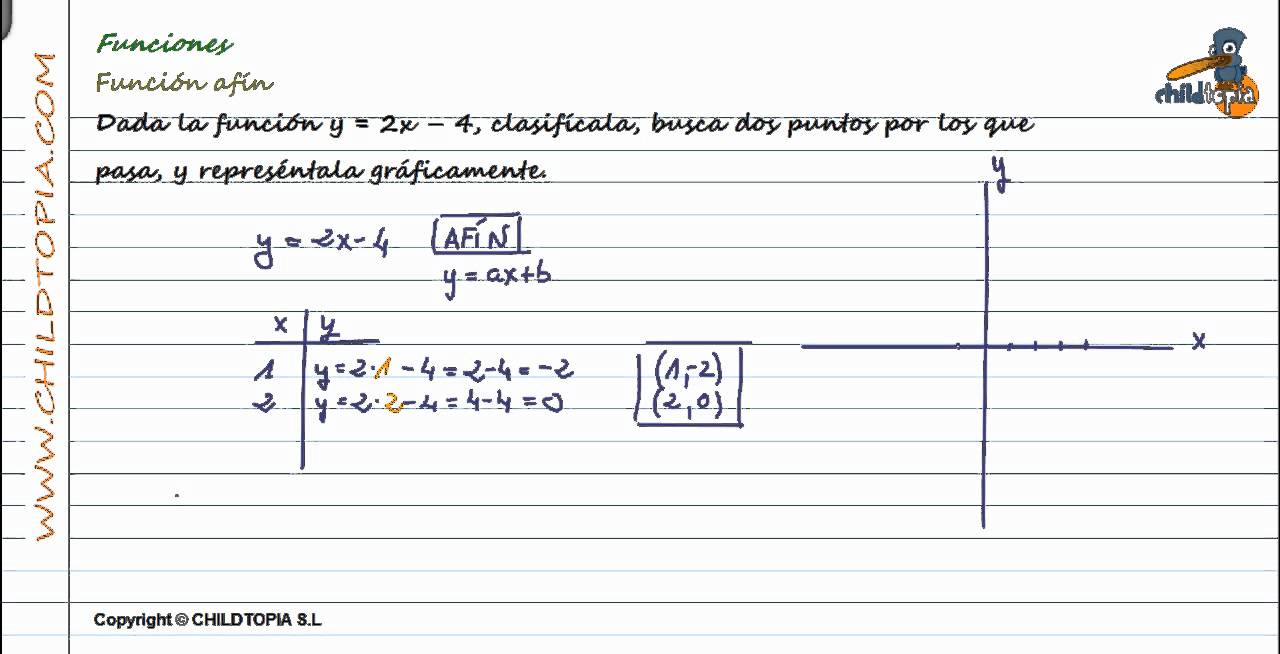 WWW.CHILDTOPIA.COM
Funciones
childtopia
Función afín
Dada la función y = 2x - 4, clasifícala, busca dos puntos por los que
pasa, y represéntala gráficamente.
y
y = 2x - 4 AFÍN
y = ax+b
x y
x
1 y = 2·1 - 4 = 2-4 = -2 (1,-2)
2 y = 2·2-4 = 4-4 = 0 (2,0)
Copyright © CHILDTOPIA S.L